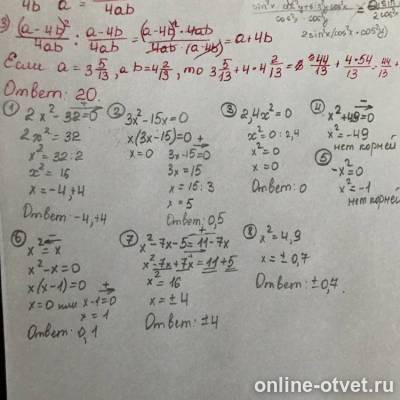 4ab a 4ab
3) (a-4b)² / 4ab : a-4b / 4ab = (a-4b)² · 4ab / 4ab · (a-4b) = a+4b
Если a = 3 5/13, a b = 4 2/13, то 3 5/13 + 4 · 4 2/13 = 44/13 + 4·54/13
Ответ: 20.
① 2x²-32=0
2x²=32
x²=32:2
x²=16
x=-4,+4
Ответ: -4,+4
② 3x²-15x=0
x(3x-15)=0
x=0 3x-15=0
3x=15
x=15:3
x=5
Ответ: 0,5
③ 2,4x²=0
x²=0:2,4
x²=0
x=0
Ответ: 0
④ x²+49=0
x²=-49
нет корней
⑤ -x²=0
x²=-1
нет корней
⑥ x²=x
x²-x=0
x(x-1)=0
x=0 или x-1=0
x=1
Ответ: 0,1
⑦ x²-7x-5=11-7x
x²-7x+7x=11+5
x²=16
x=±4
Ответ: ±4
⑧ x²=4,9
x=±0,7
Ответ: ±0,7.
online-otvet.ru